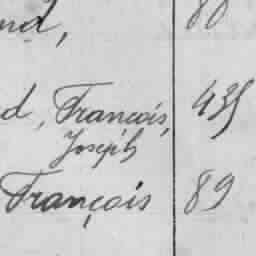 nd, 80
d, François, 435
Joseph
François 89